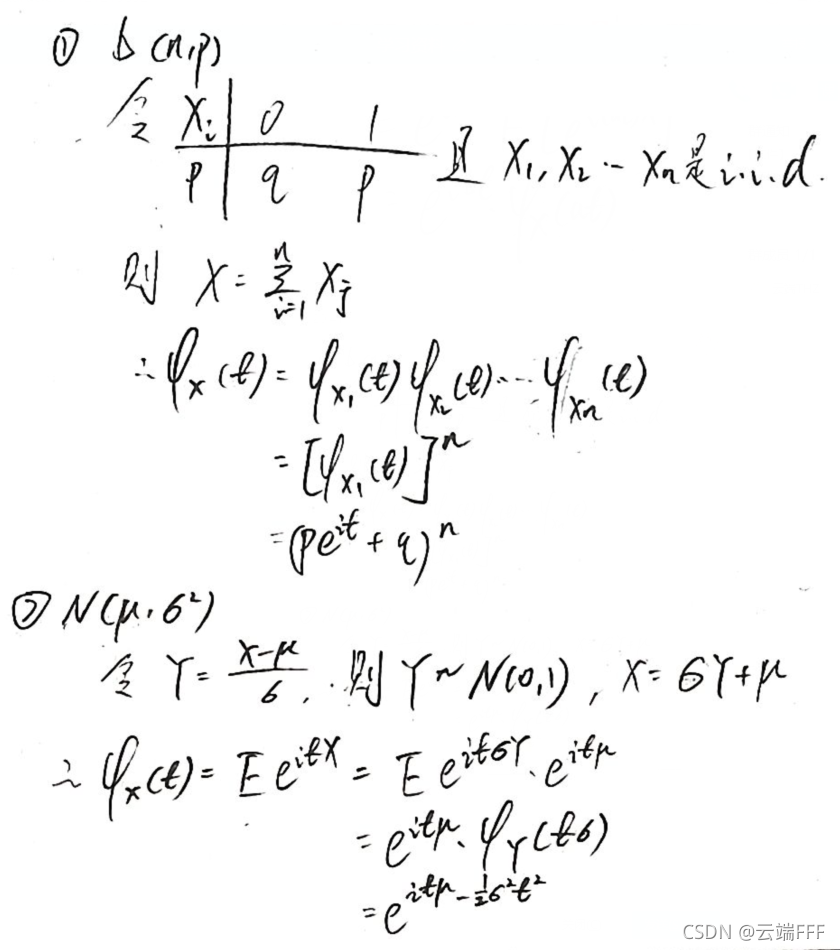 ① b(n,p)
令 Xi | 0 1
P | q p 且 X₁, X₂ ⋯ Xn 是 i.i.d.
则 X = Σ_{i=1}^{n} Xj
∴ φ_X(t) = φ_{X₁}(t) φ_{X₂}(t) ⋯ φ_{Xn}(t)
= [φ_{X₁}(t)]^n
= (pe^{it} + q)^n
② N(μ, σ²)
令 Y = (X-μ)/σ, 则 Y ~ N(0,1), X = σY+μ
∴ φ_X(t) = E e^{itX} = E e^{itσY} · e^{itμ}
= e^{itμ} · φ_Y(tσ)
= e^{itμ - ½σ²t²}
CSDN @云端FFF